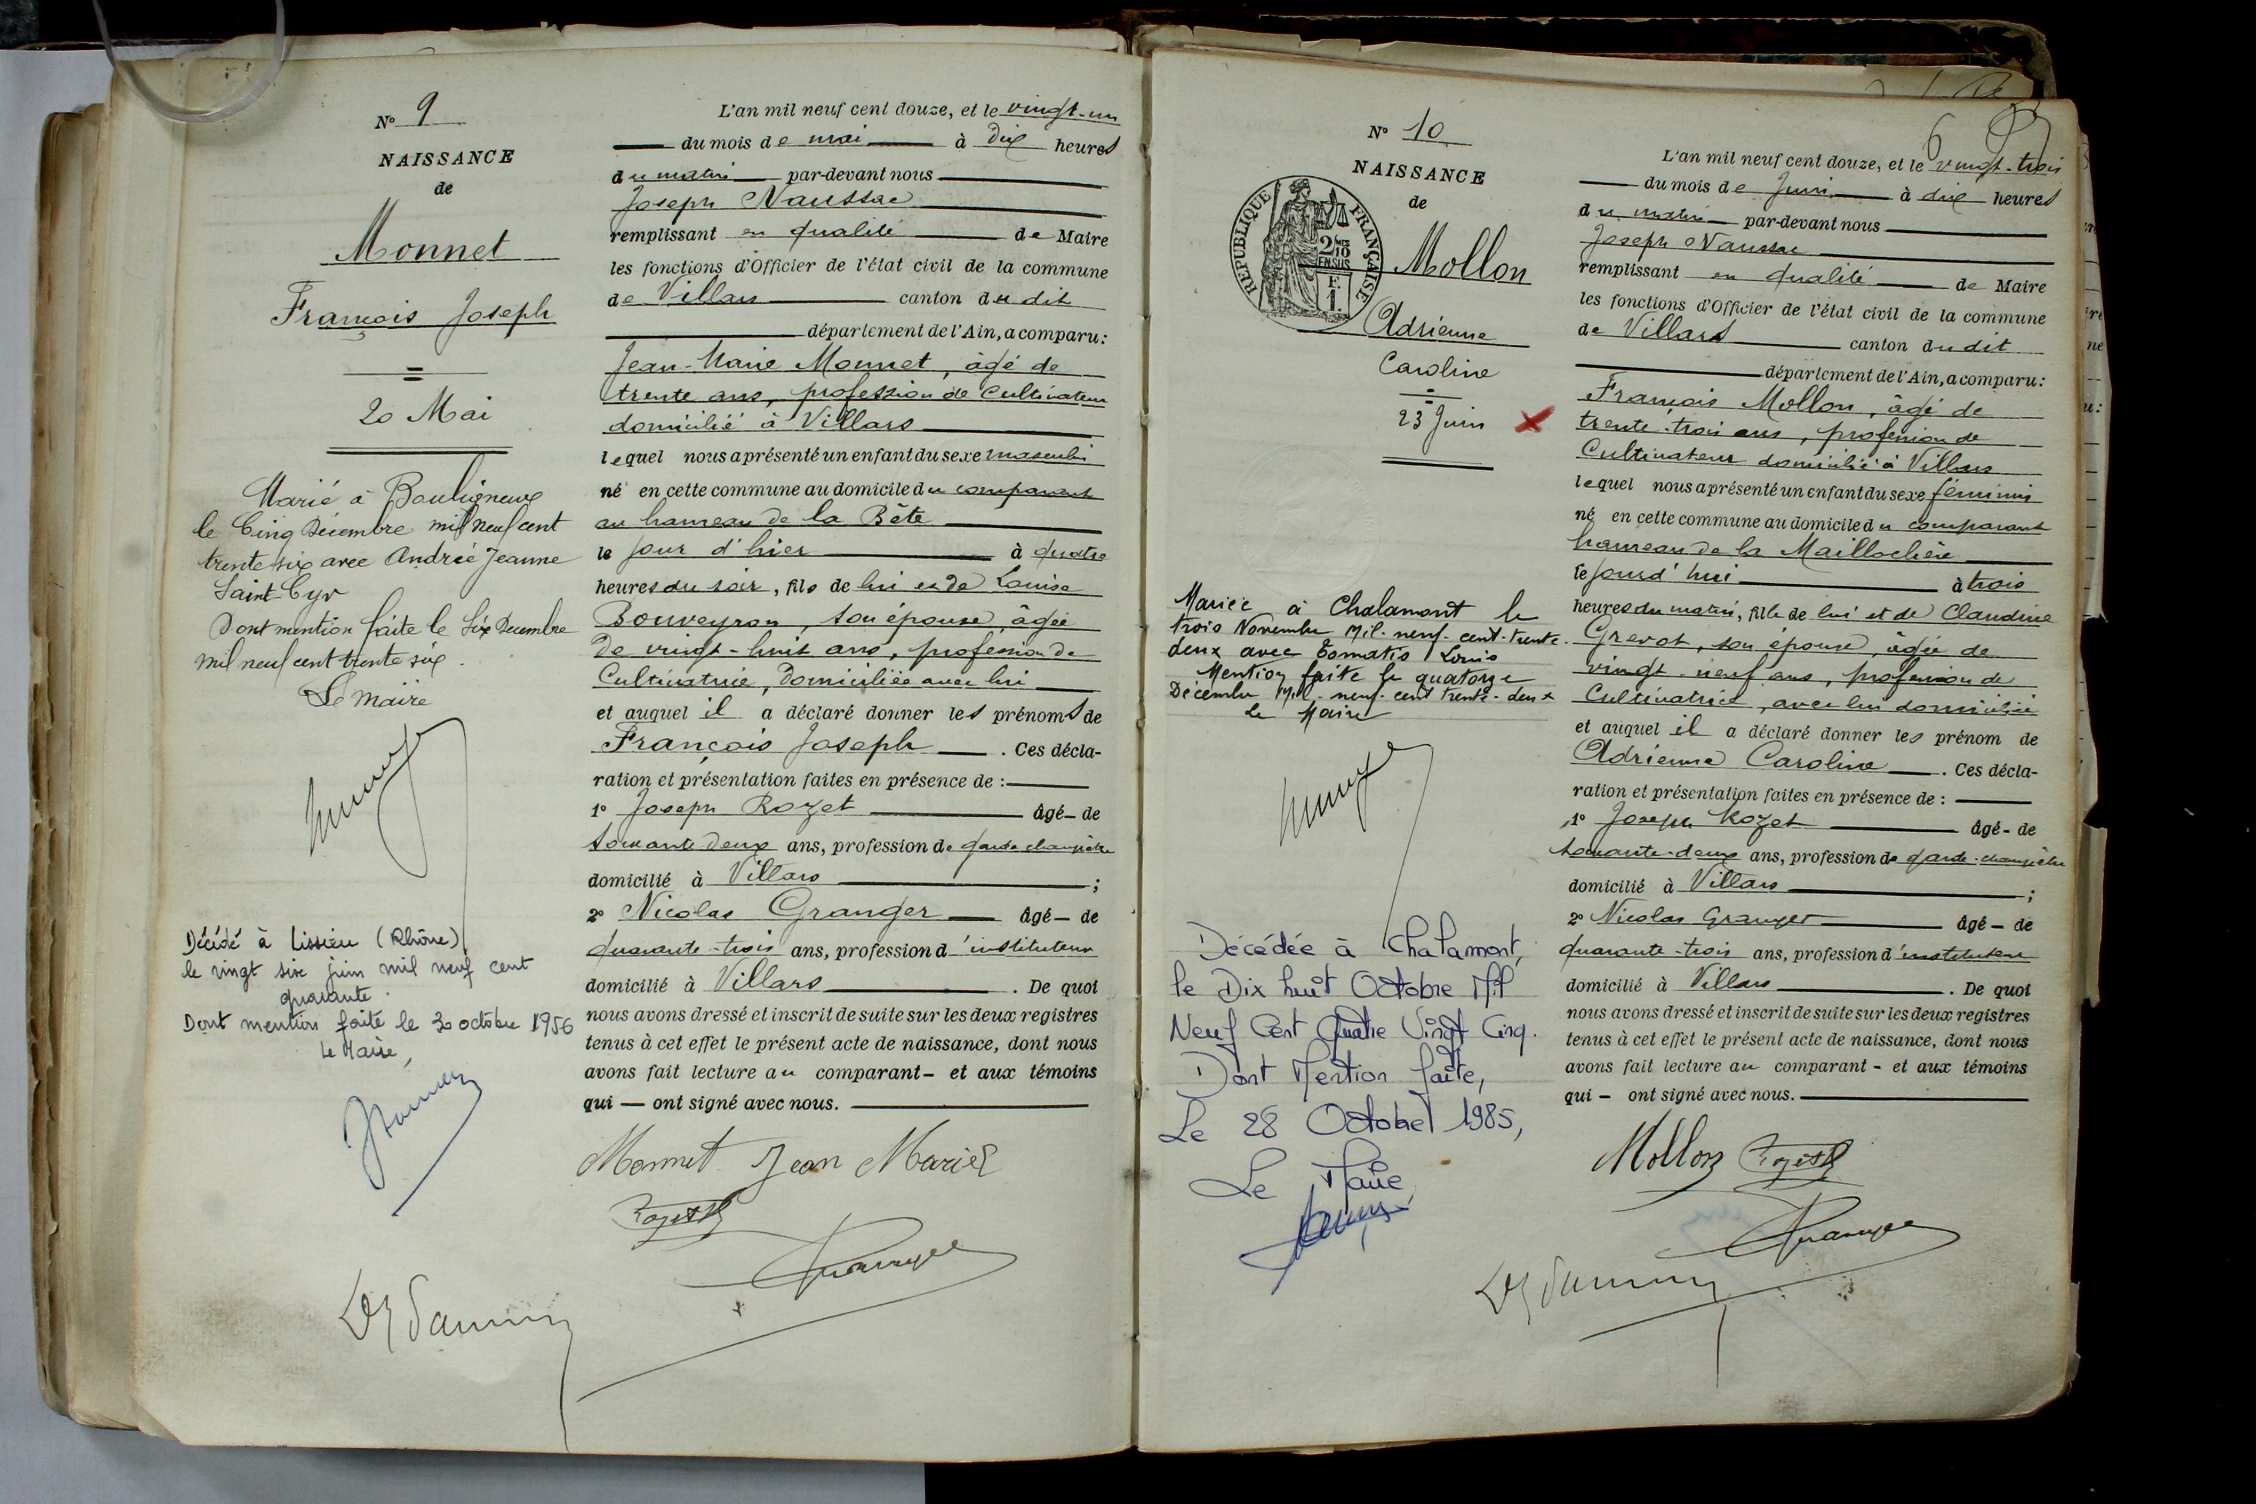 N° 9
NAISSANCE
de
Monnet
François Joseph
20 Mai
Marié à Bouligneux
le Cinq Décembre mil neuf cent
trente six avec Andrée Jeanne
Saint-Cyr
Dont mention faite le Six Décembre
mil neuf cent trente six.
Le Maire
Décédé à Lissieu (Rhône)
le vingt six juin mil neuf cent
quarante.
Dont mention faite le 30 octobre 1956
Le Maire,
L'an mil neuf cent douze, et le vingt-un
du mois de mai à dix heures
du matin par-devant nous
Joseph Naussac
remplissant en qualité de Maire
les fonctions d'Officier de l'état civil de la commune
de Villars canton du dit
département de l'Ain, a comparu:
Jean-Marie Monnet, âgé de
trente ans, profession de Cultivateur
domicilié à Villars
lequel nous a présenté un enfant du sexe masculin
né en cette commune au domicile du comparant
au hameau de la Bête
le jour d'hier à quatre
heures du soir, fils de lui et de Louise
Bouveyron, son épouse, âgée
de vingt-huit ans, profession de
Cultivatrice, domiciliée avec lui
et auquel il a déclaré donner les prénoms de
François Joseph. Ces décla-
ration et présentation faites en présence de :
1° Joseph Rozet âgé de
soixante deux ans, profession de garde champêtre
domicilié à Villars ;
2° Nicolas Granger âgé de
quarante-trois ans, profession d'instituteur
domicilié à Villars. De quoi
nous avons dressé et inscrit de suite sur les deux registres
tenus à cet effet le présent acte de naissance, dont nous
avons fait lecture au comparant et aux témoins
qui ont signé avec nous.
Monnet Jean Marie
N° 10
NAISSANCE
de
RÉPUBLIQUE FRANÇAISE
2/10 EN SUS
F. 1.
Mollon
Adrienne
Caroline
23 Juin
Mariée à Chalamont le
trois Novembre Mil-neuf-cent-trente-
deux avec Tomatis Louis
Mention faite le quatorze
Décembre Mil-neuf-cent trente-deux
Le Maire
Décédée à Chalamont,
le Dix huit Octobre Mil
Neuf Cent Quatre Vingt Cinq.
Dont Mention faite,
Le 28 Octobre 1985,
Le Maire,
6
L'an mil neuf cent douze, et le vingt-trois
du mois de Juin à dix heures
du matin par-devant nous
Joseph Naussac
remplissant en qualité de Maire
les fonctions d'Officier de l'état civil de la commune
de Villars canton du dit
département de l'Ain, a comparu:
François Mollon, âgé de
trente-trois ans, profession de
Cultivateur domicilié à Villars
lequel nous a présenté un enfant du sexe féminin
né en cette commune au domicile du comparant
hameau de la Maillochère
le jourd'hui à trois
heures du matin, fille de lui et de Claudine
Grevot, son épouse, âgée de
vingt-neuf ans, profession de
Cultivatrice, avec lui domiciliée
et auquel il a déclaré donner les prénom de
Adrienne Caroline. Ces décla-
ration et présentation faites en présence de :
1° Joseph Rozet âgé de
soixante-deux ans, profession de garde-champêtre
domicilié à Villars ;
2° Nicolas Granger âgé de
quarante-trois ans, profession d'instituteur
domicilié à Villars. De quoi
nous avons dressé et inscrit de suite sur les deux registres
tenus à cet effet le présent acte de naissance, dont nous
avons fait lecture au comparant et aux témoins
qui ont signé avec nous.
Mollon